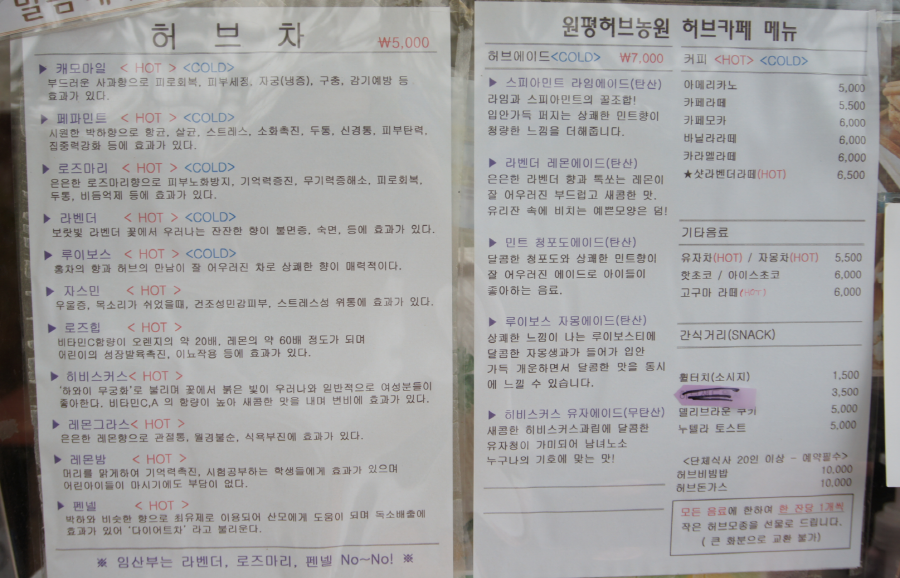 허 브 차 ₩5,000
▶ 캐모마일 < HOT > <COLD>
부드러운 사과향으로 피로회복, 피부세정, 자궁(냉증), 구충, 감기예방 등
효과가 있다.
▶ 페파민트 < HOT > <COLD>
시원한 박하향으로 항균, 살균, 스트레스, 소화촉진, 두통, 신경통, 피부탄력,
집중력강화 등에 효과가 있다.
▶ 로즈마리 < HOT > <COLD>
은은한 로즈마리향으로 피부노화방지, 기억력증진, 무기력증해소, 피로회복,
두통, 비듬억제 등에 효과가 있다.
▶ 라벤더 < HOT > <COLD>
보랏빛 라벤더 꽃에서 우러나는 잔잔한 향이 불면증, 숙면, 등에 효과가 있다.
▶ 루이보스 < HOT > <COLD>
홍차의 향과 허브의 만남이 잘 어우러진 차로 상쾌한 향이 매력적이다.
▶ 자스민 < HOT >
우울증, 목소리가 쉬었을때, 건조성민감피부, 스트레스성 위통에 효과가 있다.
▶ 로즈힙 < HOT >
비타민C함량이 오렌지의 약 20배, 레몬의 약 60배 정도가 되며
어린이의 성장발육촉진, 이뇨작용 등에 효과가 있다.
▶ 히비스커스< HOT >
'하와이 무궁화'로 불리며 꽃에서 붉은 빛이 우러나와 일반적으로 여성분들이
좋아한다. 비타민C,A 의 함량이 높아 새콤한 맛을 내며 변비에 효과가 있다.
▶ 레몬그라스< HOT >
은은한 레몬향으로 관절통, 월경불순, 식욕부진에 효과가 있다.
▶ 레몬밤 < HOT >
머리를 맑게하여 기억력촉진, 시험공부하는 학생들에게 효과가 있으며
어린아이들이 마시기에도 부담이 없다.
▶ 펜넬 < HOT >
박하와 비슷한 향으로 최유제로 이용되어 산모에게 도움이 되며 독소배출에
효과가 있어 '다이어트차' 라고 불리운다.
※ 임산부는 라벤더, 로즈마리, 펜넬 No~No! ※
원평허브농원 허브카페 메뉴
허브에이드<COLD> ₩7,000
▶ 스피아민트 라임에이드(탄산)
라임과 스피아민트의 꿀조합!
입안가득 퍼지는 상쾌한 민트향이
청량한 느낌을 더해줍니다.
▶ 라벤더 레몬에이드(탄산)
은은한 라벤더 향과 톡쏘는 레몬이
잘 어우러진 부드럽고 새콤한 맛.
유리잔 속에 비치는 예쁜모양은 덤!
▶ 민트 청포도에이드(탄산)
달콤한 청포도와 상쾌한 민트향이
잘 어우러진 에이드로 아이들이
좋아하는 음료.
▶ 루이보스 자몽에이드(탄산)
상쾌한 느낌이 나는 루이보스티에
달콤한 자몽생과가 들어가 입안
가득 개운하면서 달콤한 맛을 동시
에 느낄 수 있습니다.
▶ 히비스커스 유자에이드(무탄산)
새콤한 히비스커스과립에 달콤한
유자청이 가미되어 남녀노소
누구나의 기호에 맞는 맛!
커피 <HOT> <COLD>
아메리카노 5,000
카페라떼 5,500
카페모카 6,000
바닐라라떼 6,000
카라멜라떼 6,000
★샷라벤더라떼(HOT) 6,500
기타음료
유자차(HOT) / 자몽차(HOT) 5,500
핫초코 / 아이스초코 6,000
고구마 라떼(HOT) 6,000
간식거리(SNACK)
휠터치(소시지) 1,500
3,500
델리브라운 쿠키 5,000
누텔라 토스트 5,000
<단체식사 20인 이상 - 예약필수>
허브비빔밥 10,000
허브돈가스 10,000
모든 음료에 한하여 한 잔당 1개씩
작은 허브모종을 선물로 드립니다.
( 큰 화분으로 교환 불가)